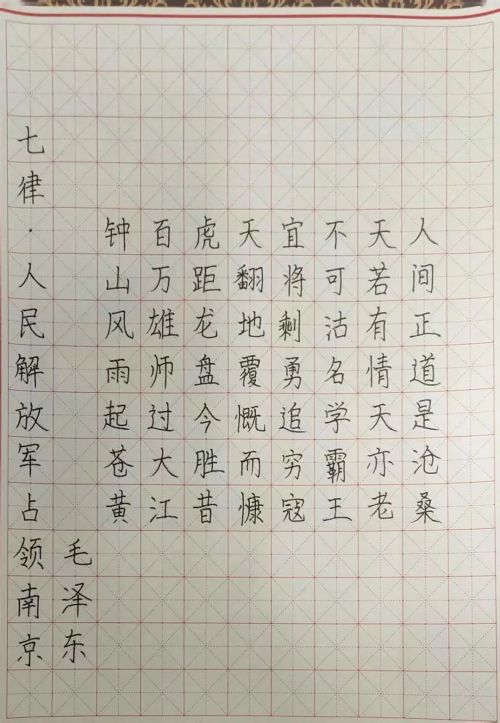 七律·人民解放军占领南京
毛泽东
钟山风雨起苍黄
百万雄师过大江
虎距龙盘今胜昔
天翻地覆慨而慷
宜将剩勇追穷寇
不可沽名学霸王
天若有情天亦老
人间正道是沧桑